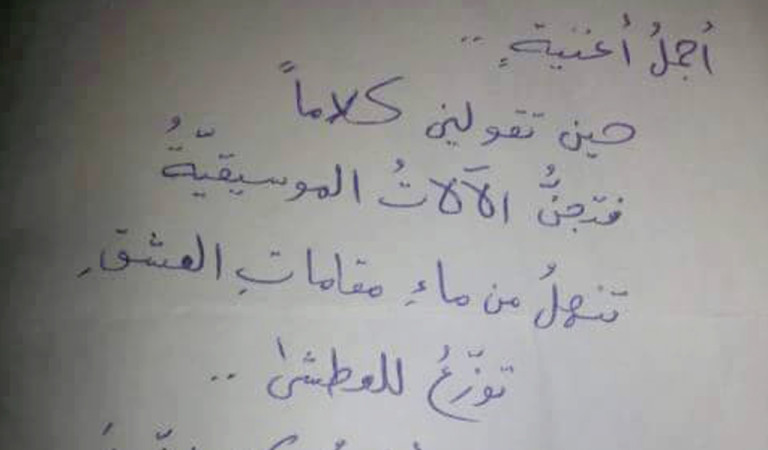 أجملُ أغنيةٍ ..
حين تقولين كلاماً
فتجنُّ الآلاتُ الموسيقيّةُ
تنهلُ من ماءِ مقاماتِ العشقِ
توزّعُ للعطشى ..